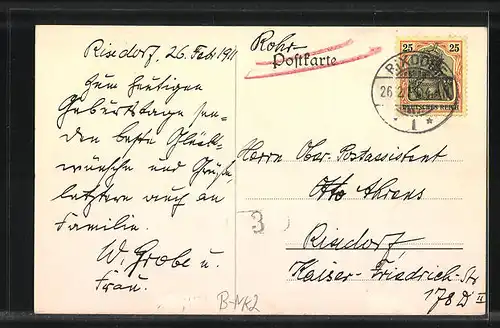 Rixdorf, 26. Feb. 1911
Zum heutigen
Geburtstage sen-
den beste Glück-
wünsche und Grüße,
letztere auch an
Familie.
W. Grobe u.
Frau.
Rohr-
Postkarte
25 25
DEUTSCHES REICH
RIXDORF
26.2.
* 1 *
Herrn Ober-Postassistent
Otto Ahrens
Rixdorf,
Kaiser-Friedrich-Str
178 D II
3
B-MK2